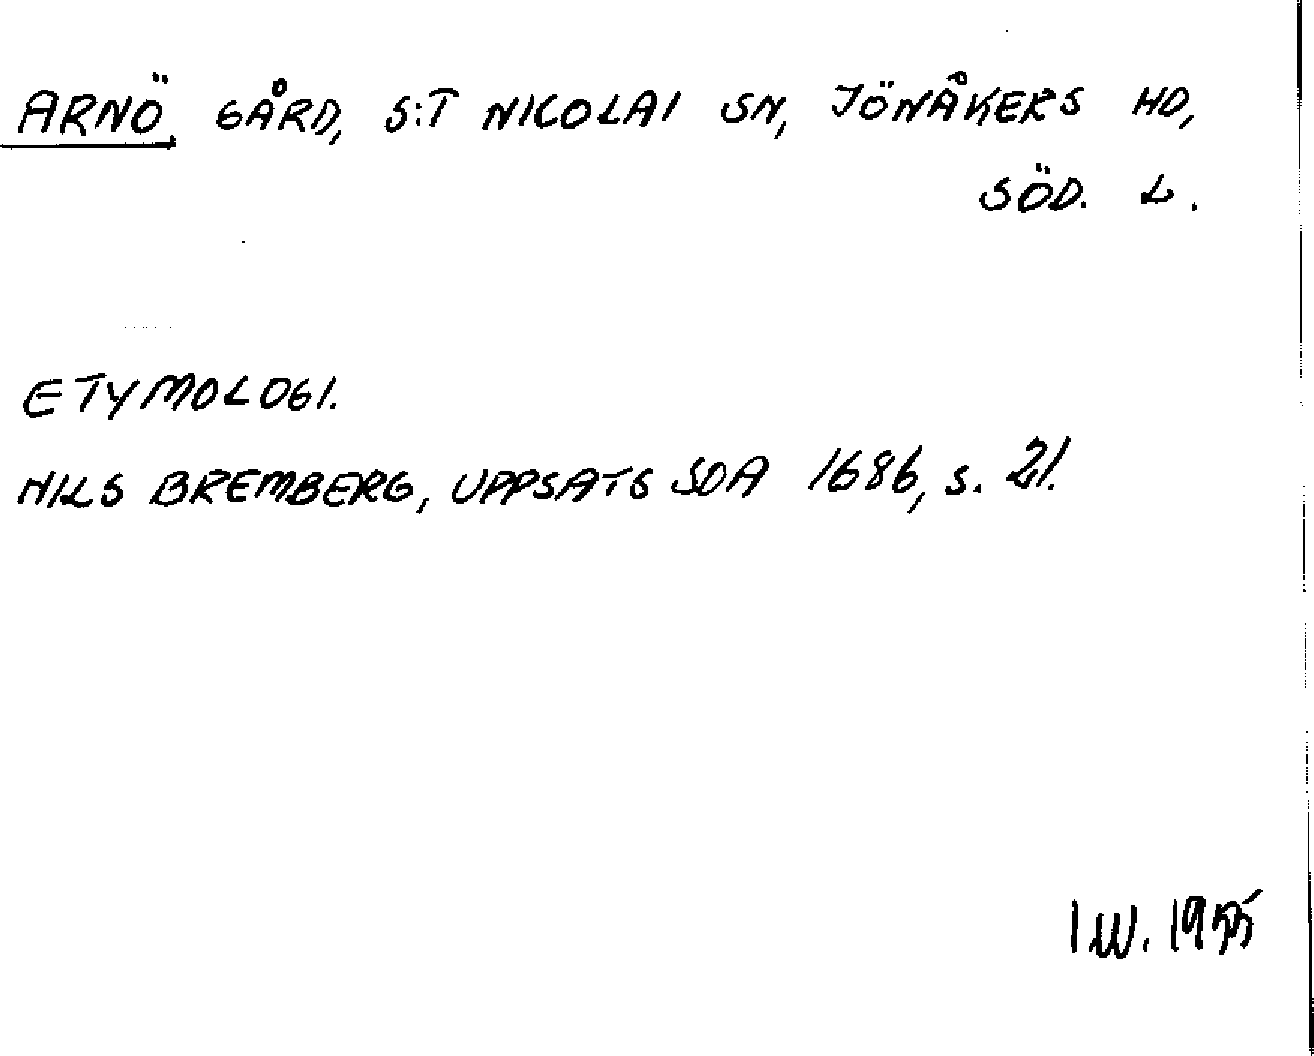 ARNÖ GÅRD, S:T NICOLAI SN, JÖNÅKERS HD,
SÖD. L.
ETYMOLOGI.
NILS BREMBERG, UPPSATS SOA 1686, s. 21.
I W. 1955